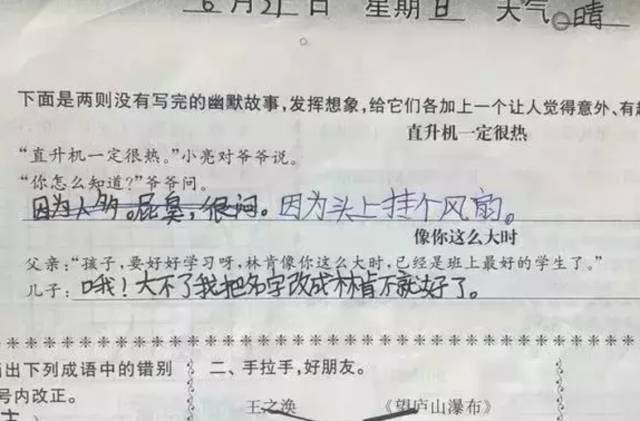 6月21日 星期日 天气:晴
下面是两则没有写完的幽默故事,发挥想象,给它们各加上一个让人觉得意外、有
直升机一定很热
“直升机一定很热。”小亮对爷爷说。
“你怎么知道?”爷爷问。
因为人多。屁臭,很闷。因为头上挂个风扇。
像你这么大时
父亲:“孩子,要好好学习呀,林肯像你这么大时,已经是班上最好的学生了。”
儿子:哦!大不了我把名字改成林肯不就好了。
出下列成语中的错别 二、手拉手,好朋友。
号内改正。
王之涣 《望庐山瀑布》